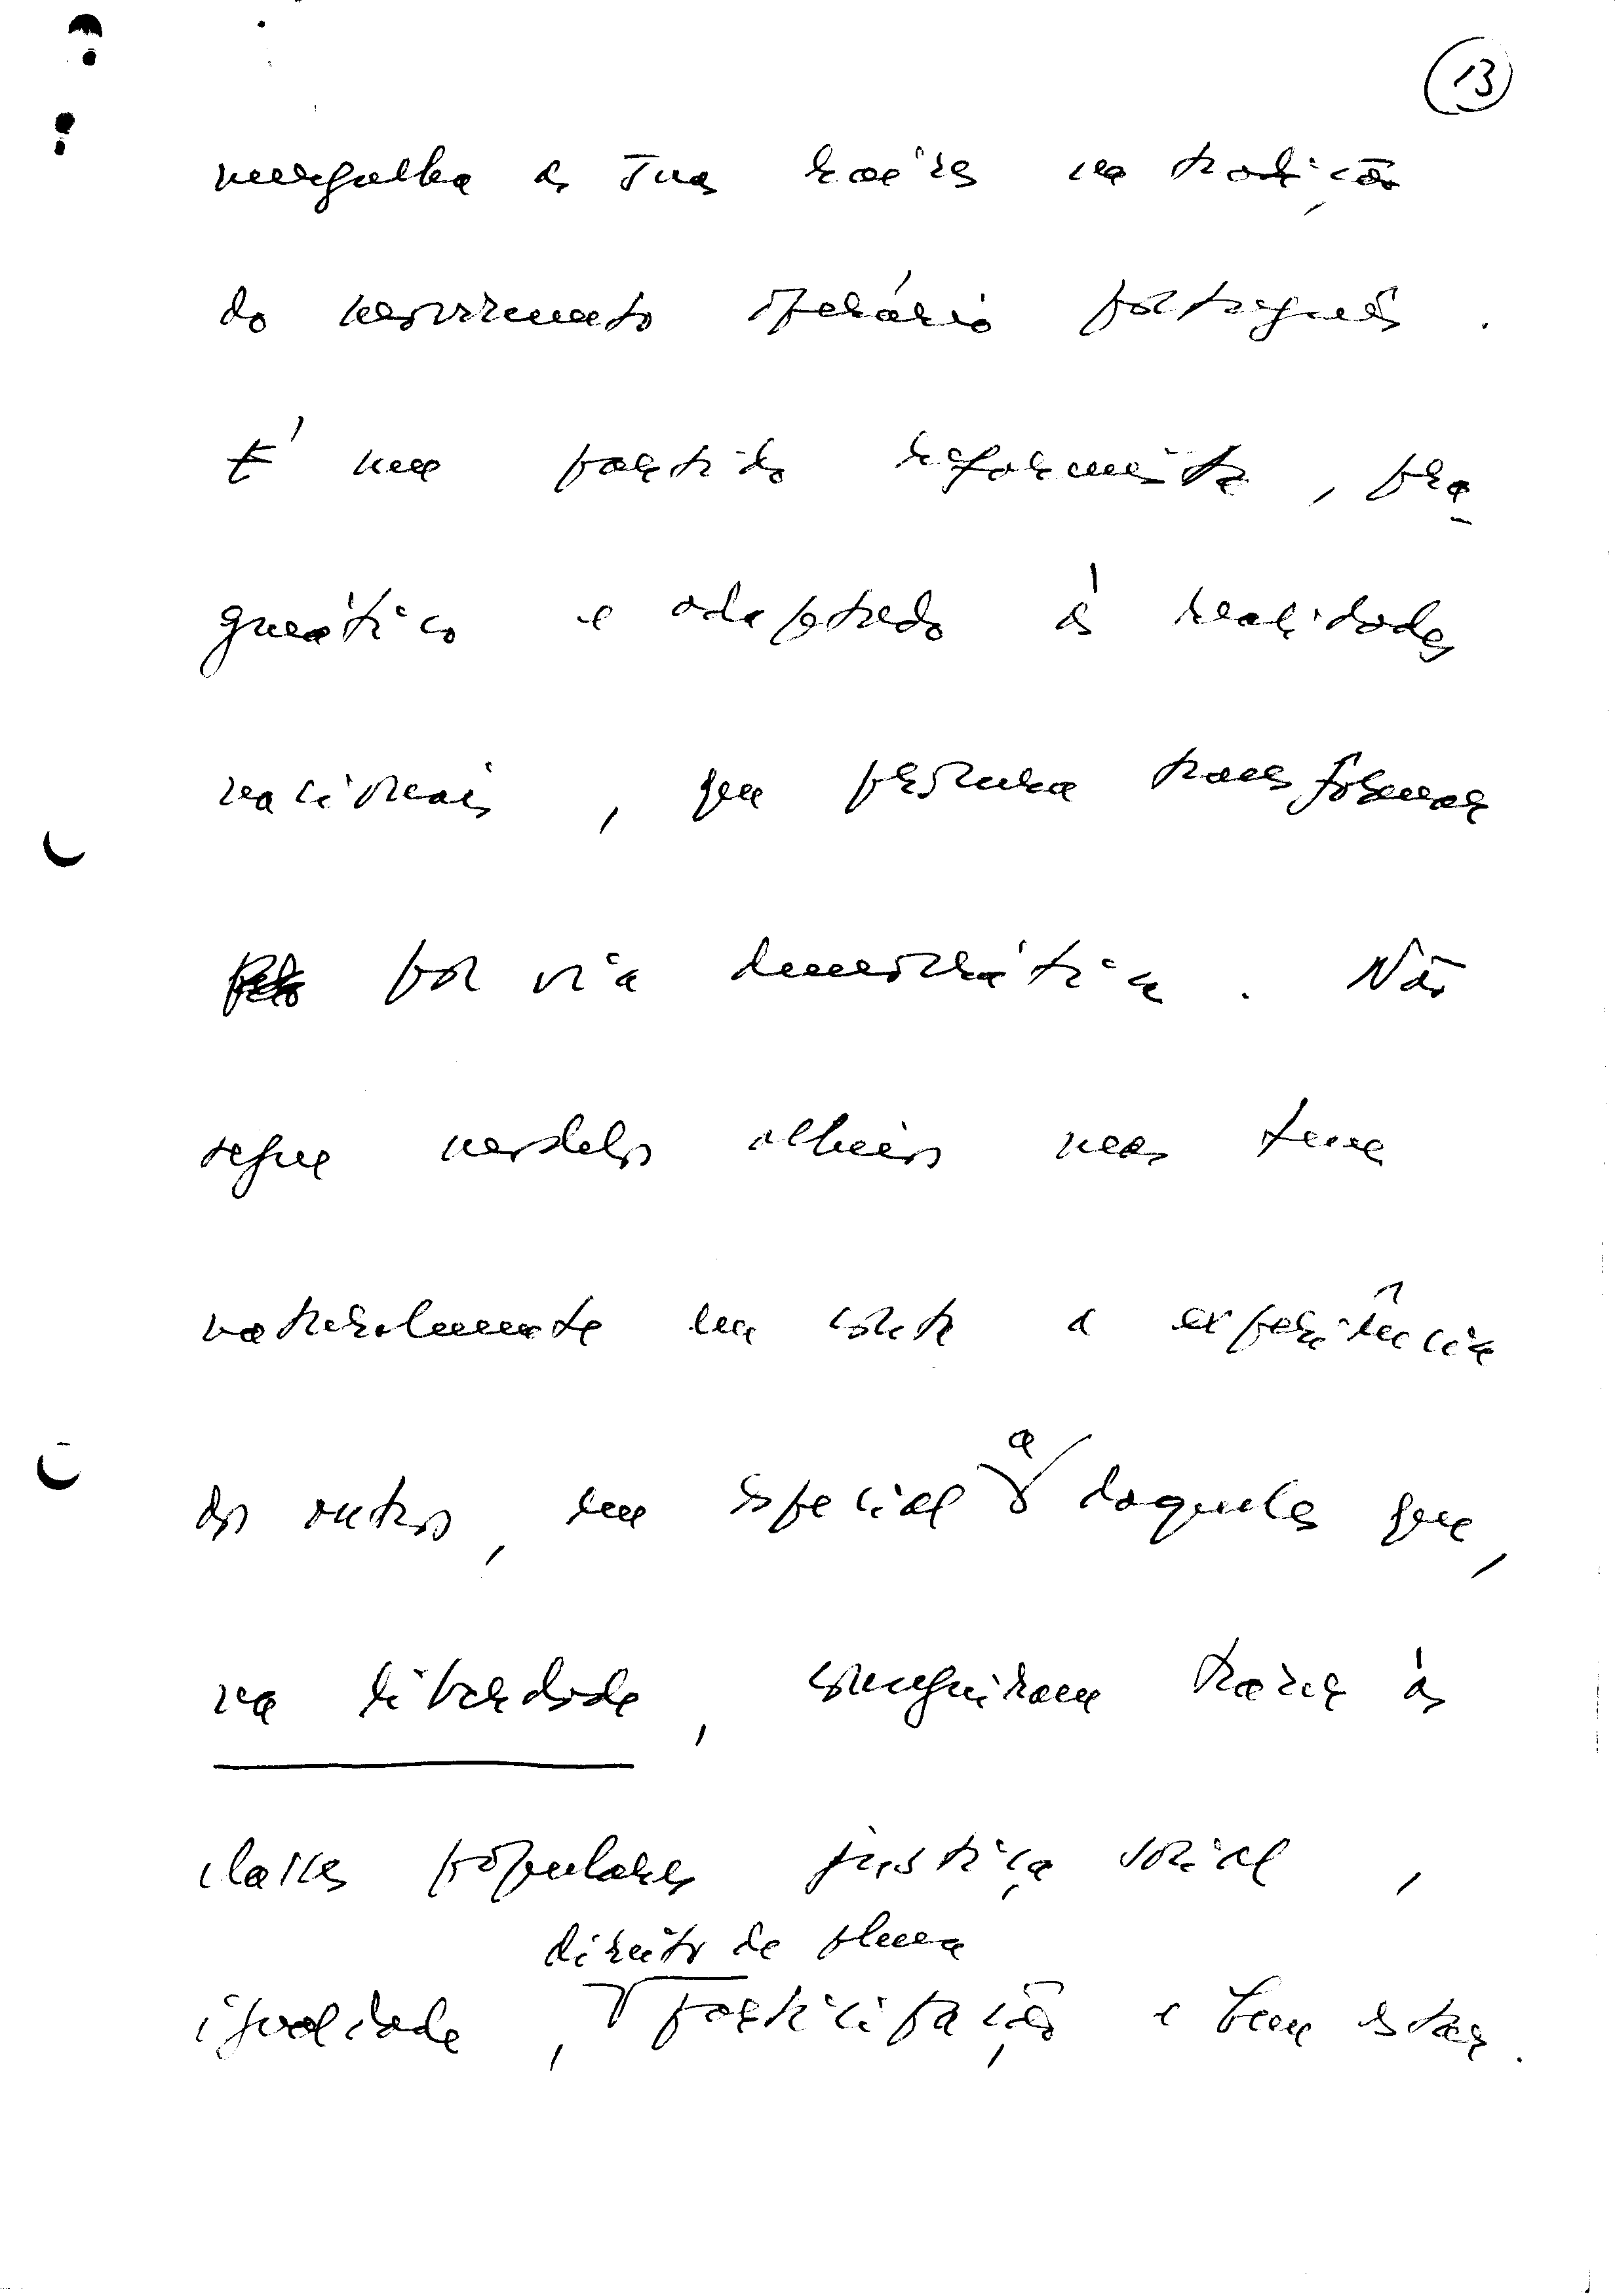 13
mergulha as suas raízes na tradição
do movimento operário português.
É um partido reformista, pra-
gmático e adaptado às realidades
nacionais, que procura transformar
por via democrática. Não
segue modelos alheios mas tem
naturalmente em conta a experiência
dos outros, em especial a daqueles que,
na liberdade, conseguiram trazer às
classes populares justiça social,
direito de plena
igualdade, participação e bem estar.